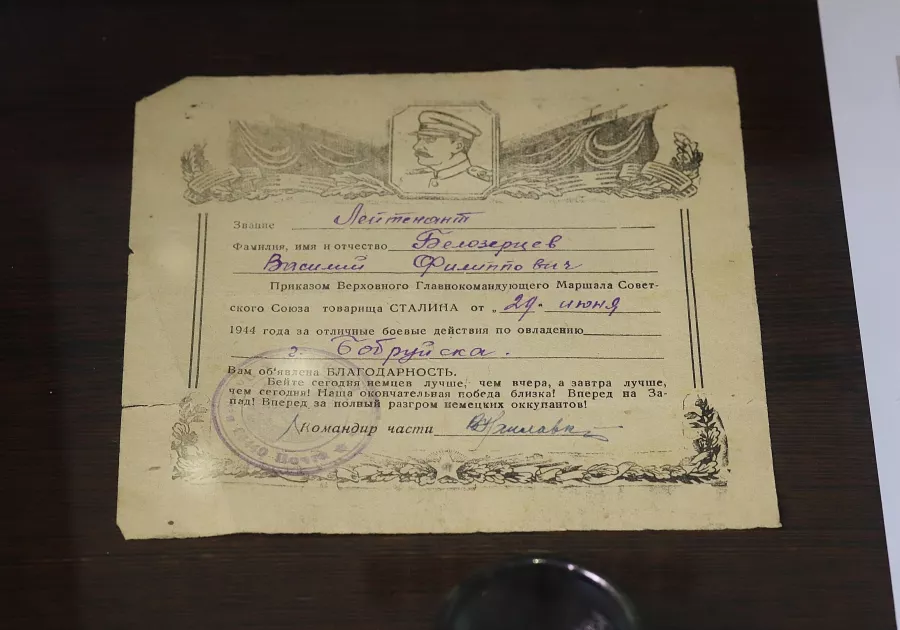 Звание Лейтенант
Фамилия, имя и отчество Белозерцев
Василий Филиппович
Приказом Верховного Главнокомандующего Маршала Совет-
ского Союза товарища СТАЛИНА от „29“ июня
1944 года за отличные боевые действия по овладению
г. Бобруйска.
Вам об'явлена БЛАГОДАРНОСТЬ.
Бейте сегодня немцев лучше, чем вчера, а завтра лучше,
чем сегодня! Наша окончательная победа близка! Вперед на За-
пад! Вперед за полный разгром немецких оккупантов!
Командир части
Почта